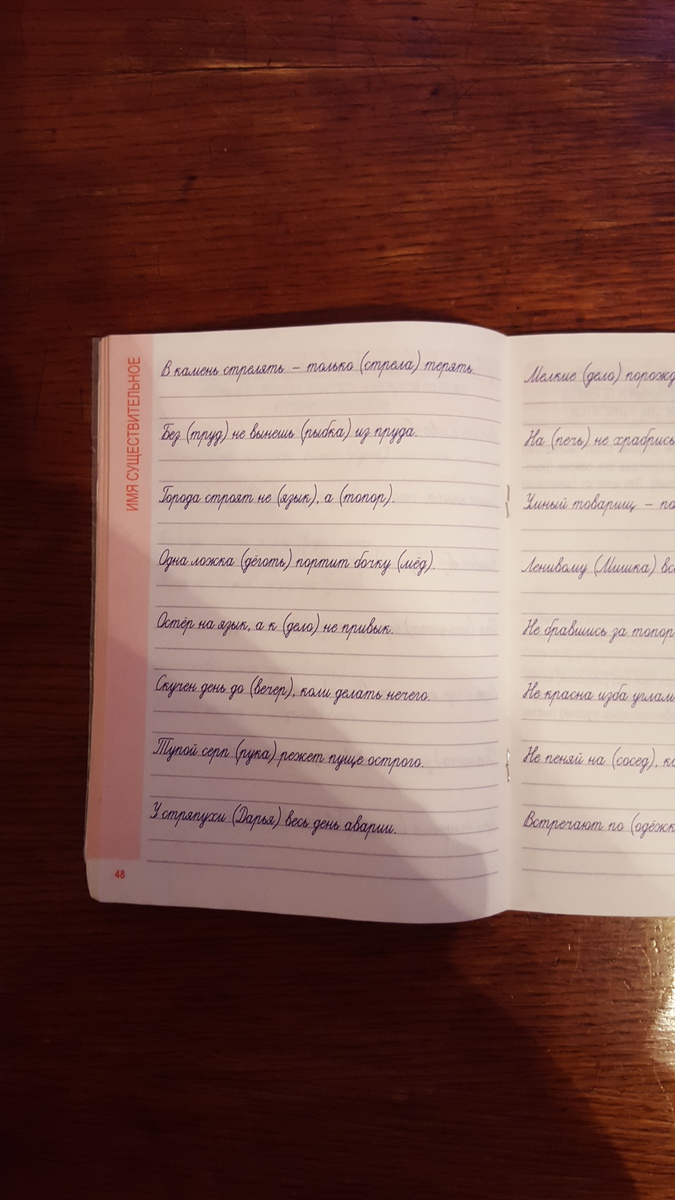 ИМЯ СУЩЕСТВИТЕЛЬНОЕ
В камень стрелять – только (стрела) терять.
Без (труд) не вынешь (рыбка) из пруда.
Города строят не (язык), а (топор).
Одна ложка (дёготь) портит бочку (мёд).
Остёр на язык, а к (дело) не привык.
Скучен день до (вечер), коли делать нечего.
Тупой серп (рука) режет пуще острого.
У стряпухи (Дарья) весь день аварии.
48
Мелкие (дело) порожд
На (печь) не храбрись
Умный товарищ – по
Ленивому (Мишка) вс
Не бравшись за топор
Не красна изба углам
Не пеняй на (сосед), ко
Встречают по (одёжк